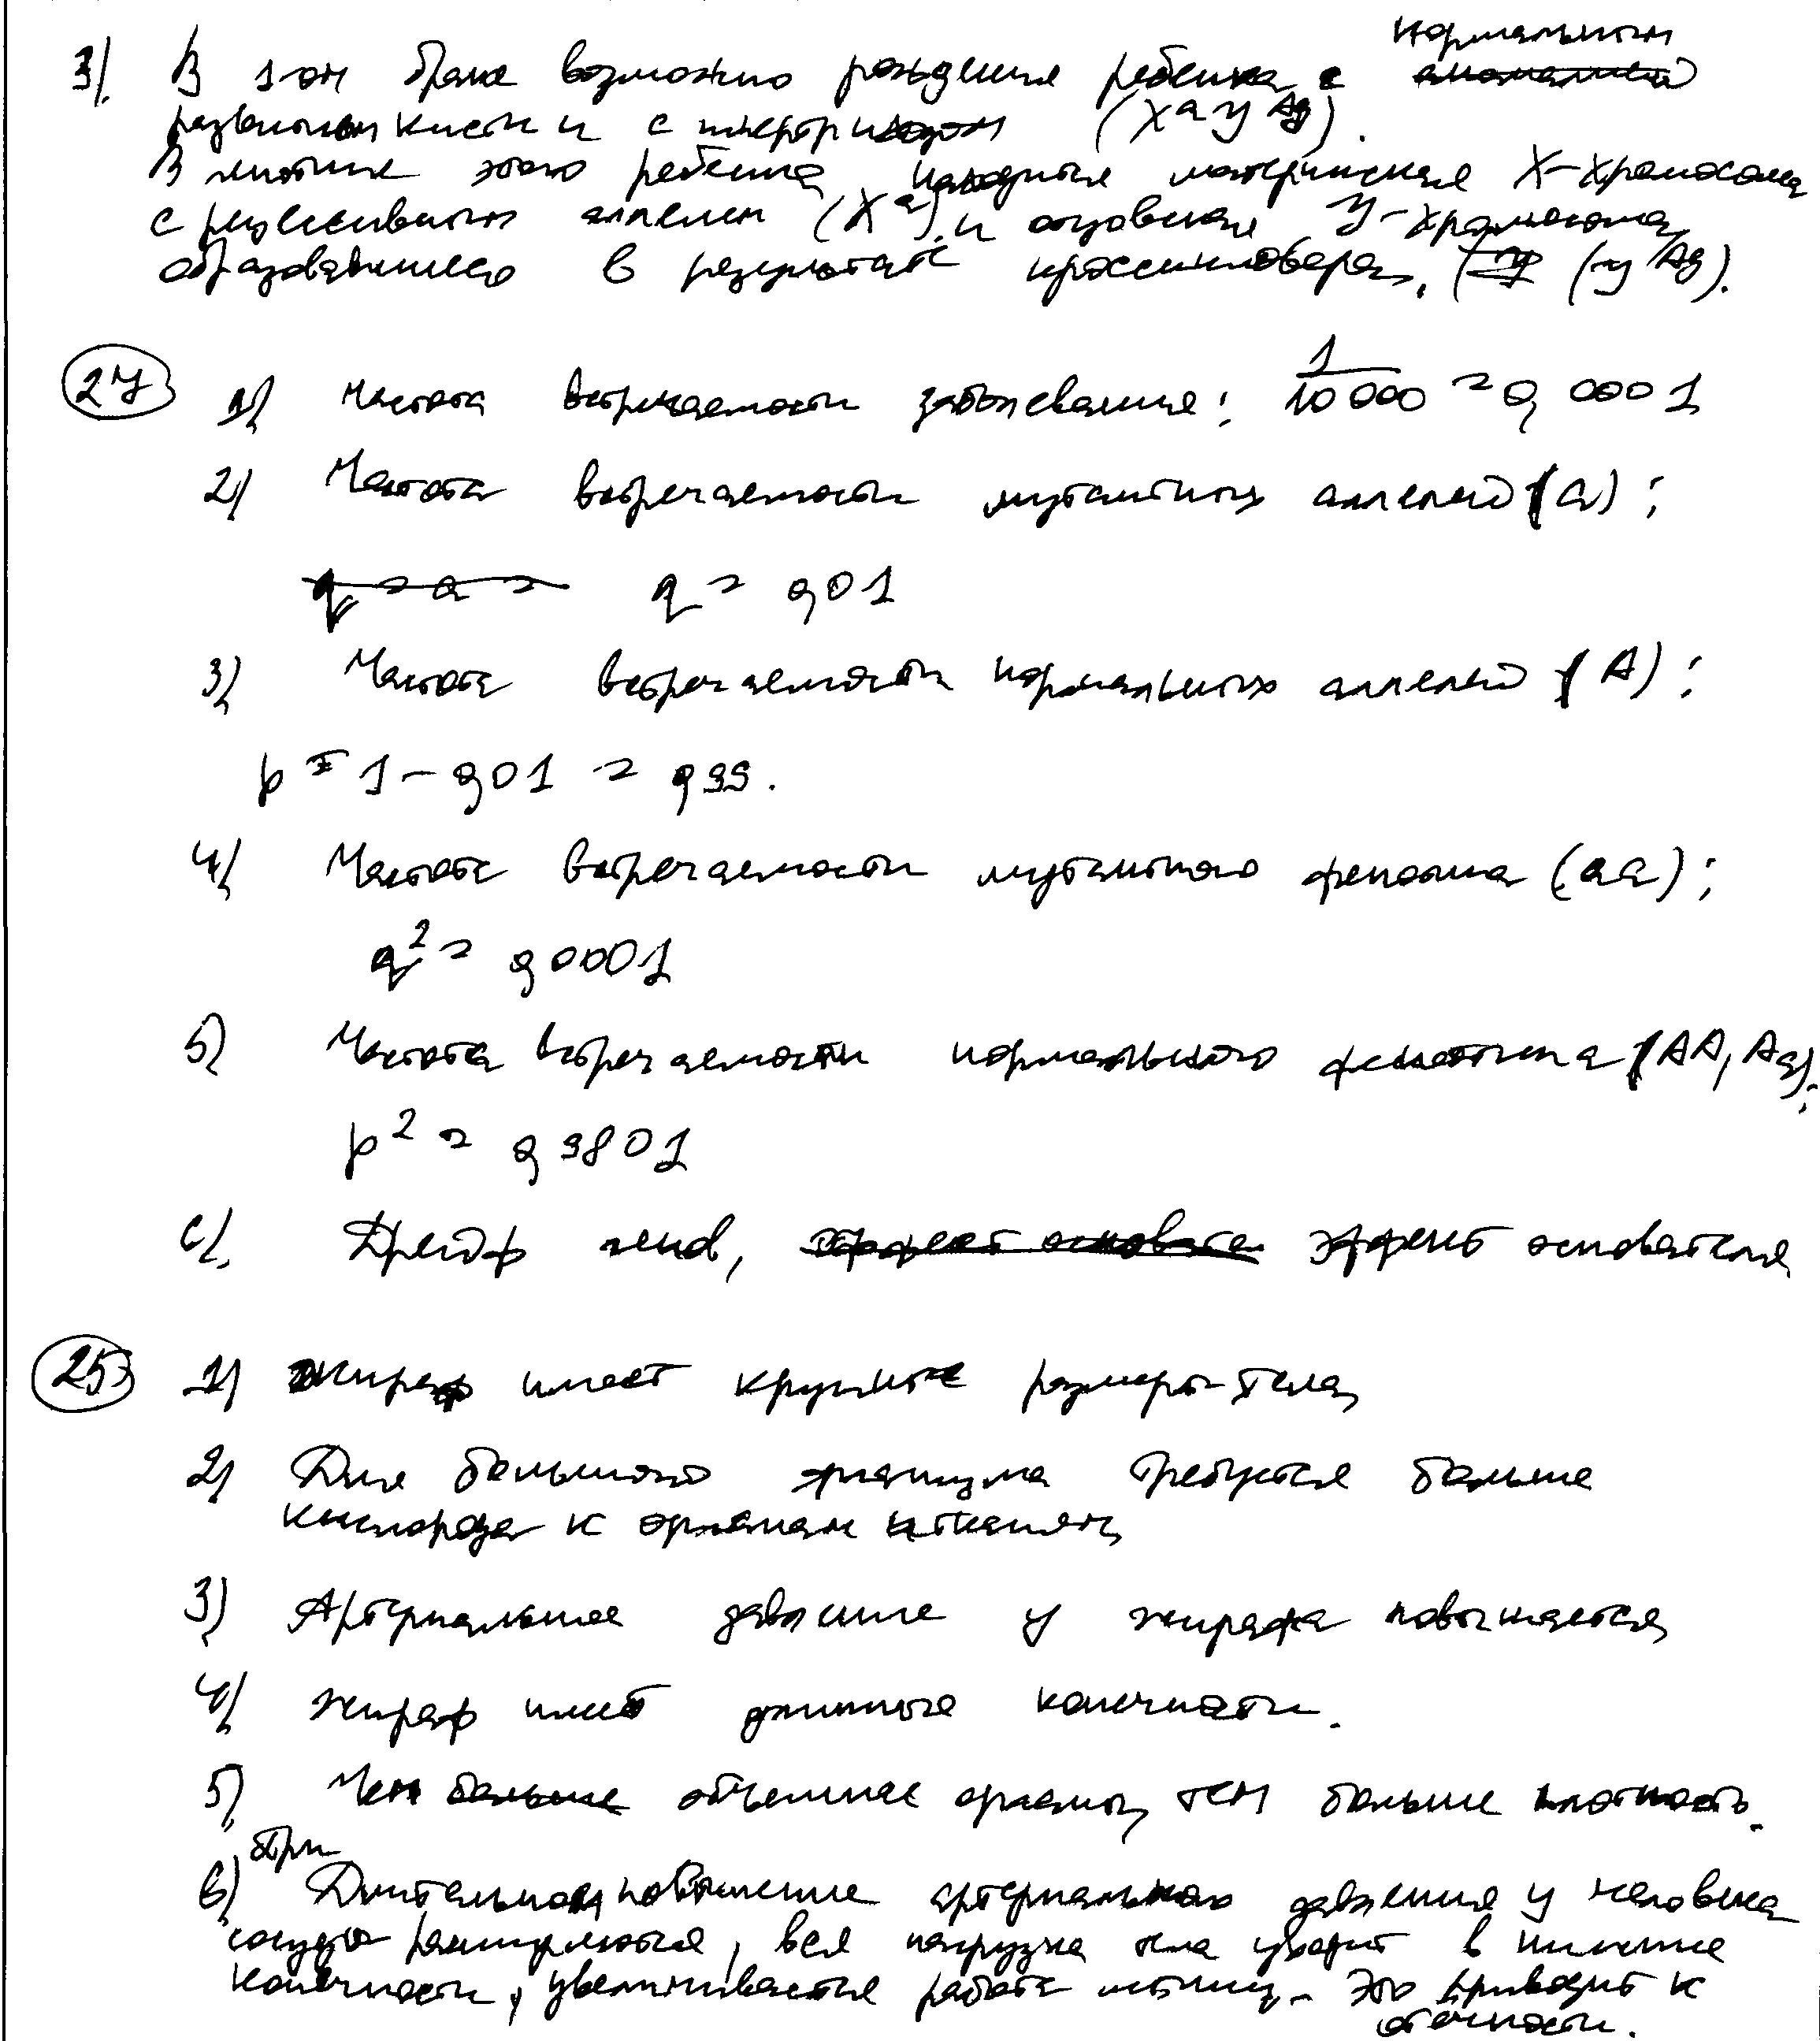 нормальным
3) В 1-ом браке возможно рождение ребенка с аномалией
развитием кисти и с ихтиозом (X^a Y^Ag).
В генотипе этого ребенка находится материнская X-хромосома
с рецессивным аллелем (X^a), и отцовская Y-хромосома,
образовавшаяся в результате кроссинговера, (Y^Ag).
27 1) Частота встречаемости заболевания: 1/10 000 = 0,0001
2) Частота встречаемости мутантных аллелей (a):
q = a = q = 0,01
3) Частота встречаемости нормальных аллелей (A):
p = 1 - 0,01 = 0,99.
4) Частота встречаемости мутантного фенотипа (aa):
q² = 0,0001
5) Частота встречаемости нормального фенотипа (AA, Aa):
p² = 0,9801
6) Дрейф генов, эффект основате эффект основателя
25 1) Жираф имеет крупные размеры тела,
2) Для большого организма требуется больше
кислорода к органам и тканям,
3) Артериальное давление у жирафа повышается,
4) Жираф имеет длинные конечности.
5) Чем больше объемнее органы, тем больше плотность.
6) При Длительном повышение артериального давления у человека
сосуды расширяются, вся нагрузка тела уходит в нижние
конечности, увеличивается работа мышц. Это приводит к
отечности.